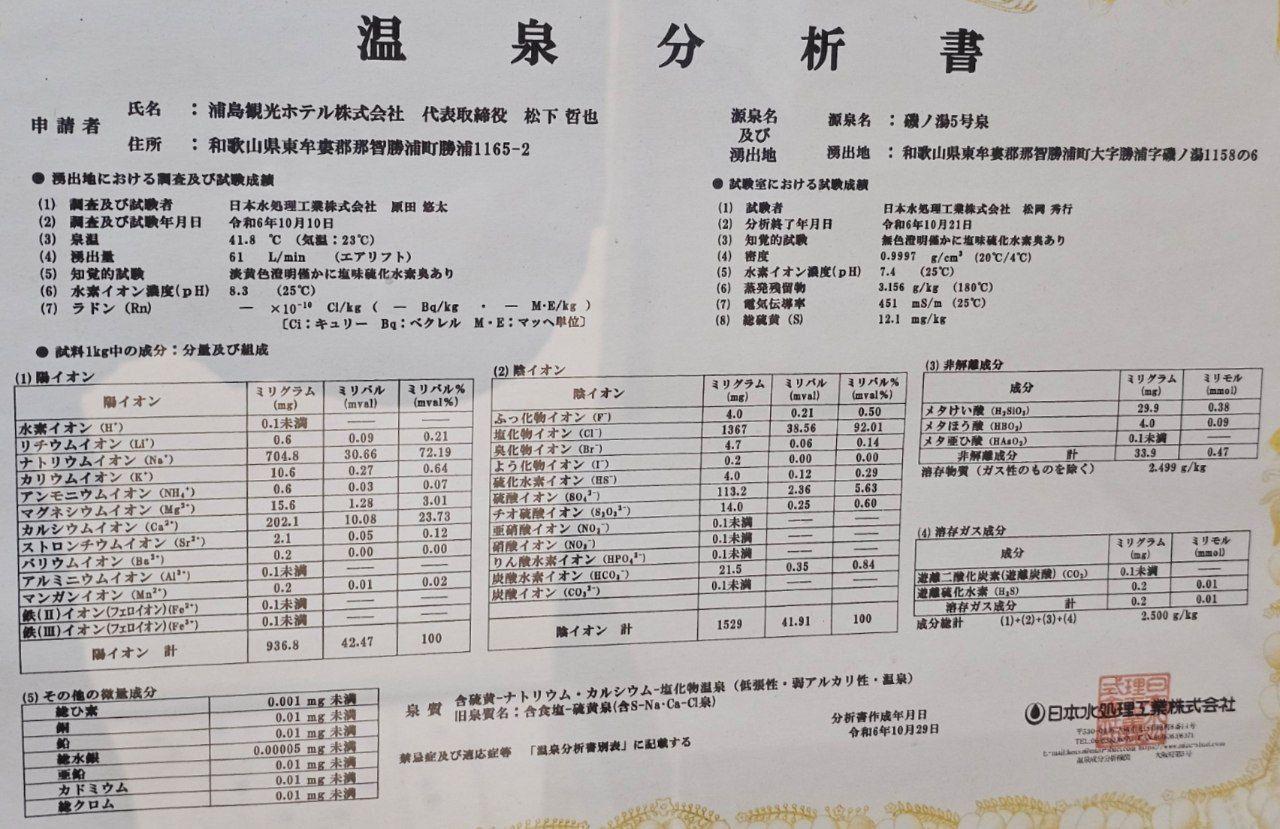 温泉分析書
申請者
氏名 : 浦島観光ホテル株式会社 代表取締役 松下 哲也
住所 : 和歌山県東牟婁郡那智勝浦町勝浦1165-2
源泉名及び湧出地
源泉名 : 磯ノ湯5号泉
湧出地 : 和歌山県東牟婁郡那智勝浦町大字勝浦字磯ノ湯1158の6
● 湧出地における調査及び試験成績
(1) 調査及び試験者 日本水処理工業株式会社 原田 悠太
(2) 調査及び試験年月日 令和6年10月10日
(3) 泉温 41.8 ℃ (気温:23℃)
(4) 湧出量 61 L/min (エアリフト)
(5) 知覚的試験 淡黄色澄明僅かに塩味硫化水素臭あり
(6) 水素イオン濃度(pH) 8.3 (25℃)
(7) ラドン (Rn) — ×10⁻¹⁰ Ci/kg ( — Bq/kg ・ — M・E/kg )
[Ci:キュリー Bq:ベクレル M・E:マッヘ単位]
● 試験室における試験成績
(1) 試験者 日本水処理工業株式会社 松岡 秀行
(2) 分析終了年月日 令和6年10月21日
(3) 知覚的試験 無色澄明僅かに塩味硫化水素臭あり
(4) 密度 0.9997 g/cm³ (20℃/4℃)
(5) 水素イオン濃度(pH) 7.4 (25℃)
(6) 蒸発残留物 3.156 g/kg (180℃)
(7) 電気伝導率 451 mS/m (25℃)
(8) 総硫黄 (S) 12.1 mg/kg
● 試料1kg中の成分:分量及び組成
(1) 陽イオン
陽イオン ミリグラム(mg) ミリバル(mval) ミリバル%(mval%)
水素イオン (H⁺) 0.1未満 —— ——
リチウムイオン (Li⁺) 0.6 0.09 0.21
ナトリウムイオン (Na⁺) 704.8 30.66 72.19
カリウムイオン (K⁺) 10.6 0.27 0.64
アンモニウムイオン (NH₄⁺) 0.6 0.03 0.07
マグネシウムイオン (Mg²⁺) 15.6 1.28 3.01
カルシウムイオン (Ca²⁺) 202.1 10.08 23.73
ストロンチウムイオン (Sr²⁺) 2.1 0.05 0.12
バリウムイオン (Ba²⁺) 0.2 0.00 0.00
アルミニウムイオン (Al³⁺) 0.1未満 —— ——
マンガンイオン (Mn²⁺) 0.2 0.01 0.02
鉄(II)イオン(フェロイオン)(Fe²⁺) 0.1未満 —— ——
鉄(III)イオン(フェロイオン)(Fe³⁺) 0.1未満 —— ——
陽イオン 計 936.8 42.47 100
(2) 陰イオン
陰イオン ミリグラム(mg) ミリバル(mval) ミリバル%(mval%)
ふっ化物イオン (F⁻) 4.0 0.21 0.50
塩化物イオン (Cl⁻) 1367 38.56 92.01
臭化物イオン (Br⁻) 4.7 0.06 0.14
よう化物イオン (I⁻) 0.2 0.00 0.00
硫化水素イオン (HS⁻) 4.0 0.12 0.29
硫酸イオン (SO₄²⁻) 113.2 2.36 5.63
チオ硫酸イオン (S₂O₃²⁻) 14.0 0.25 0.60
亜硝酸イオン (NO₂⁻) 0.1未満 —— ——
硝酸イオン (NO₃⁻) 0.1未満 —— ——
りん酸水素イオン (HPO₄²⁻) 0.1未満 —— ——
炭酸水素イオン (HCO₃⁻) 21.5 0.35 0.84
炭酸イオン (CO₃²⁻) 0.1未満 —— ——
陰イオン 計 1529 41.91 100
(3) 非解離成分
成分 ミリグラム(mg) ミリモル(mmol)
メタけい酸 (H₂SiO₃) 29.9 0.38
メタほう酸 (HBO₂) 4.0 0.09
メタ亜ひ酸 (HAsO₂) 0.1未満 ——
非解離成分 計 33.9 0.47
溶存物質 (ガス性のものを除く) 2.499 g/kg
(4) 溶存ガス成分
成分 ミリグラム(mg) ミリモル(mmol)
遊離二酸化炭素(遊離炭酸) (CO₂) 0.1未満 ——
遊離硫化水素 (H₂S) 0.2 0.01
溶存ガス成分 計 0.2 0.01
成分総計 (1)+(2)+(3)+(4) 2.500 g/kg
(5) その他の微量成分
総ひ素 0.001 mg 未満
銅 0.01 mg 未満
鉛 0.01 mg 未満
総水銀 0.00005 mg 未満
亜鉛 0.01 mg 未満
カドミウム 0.01 mg 未満
総クロム 0.01 mg 未満
泉質 含硫黄-ナトリウム・カルシウム-塩化物温泉 (低張性・弱アルカリ性・温泉)
旧泉質名:含食塩-硫黄泉(含S-Na・Ca-Cl泉)
禁忌症及び適応症等 「温泉分析書別表」に記載する
分析書作成年月日
令和6年10月29日
日本水処理工業株式会社
温泉成分分析機関